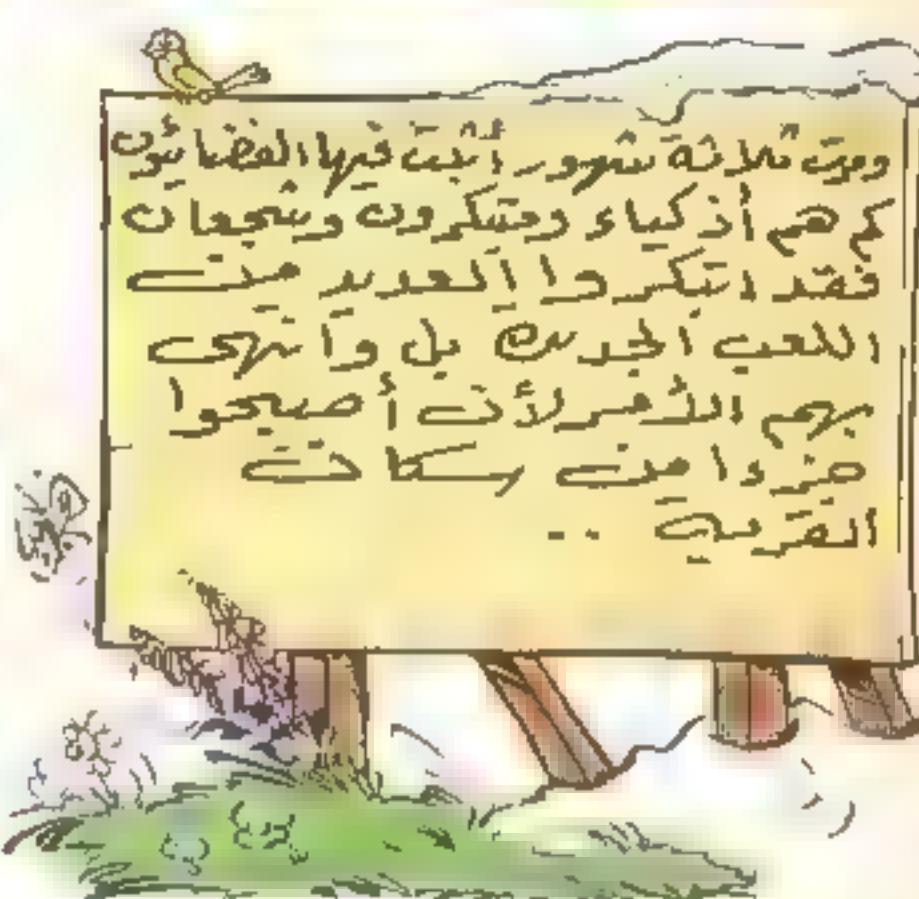 ومرت ثلاثة شهور أثبت فيها الفضائيون
كم هم أذكياء ومبتكرون وشجعان
فقد ابتكروا العديد من
اللعب الجديدة بل وانتهى
بهم الأمر لأن أصبحوا
جزءا من سكان
القرية ..